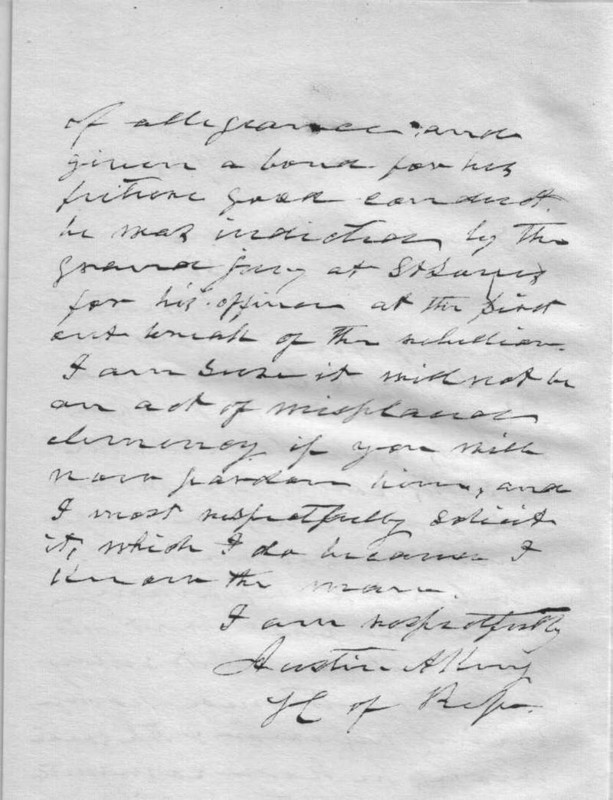 of allegiance and
given a bond for his
future good conduct.
he was indicted by the
grand jury at St Louis
for his offence at the first
out break of the rebellion.
I am sure it will not be
an act of misplaced
clemency if you will
now pardon him, and
I most respectfully solicit
it, which I do because I
know the man.
I am respectfully
Austin A King
H of Reps.